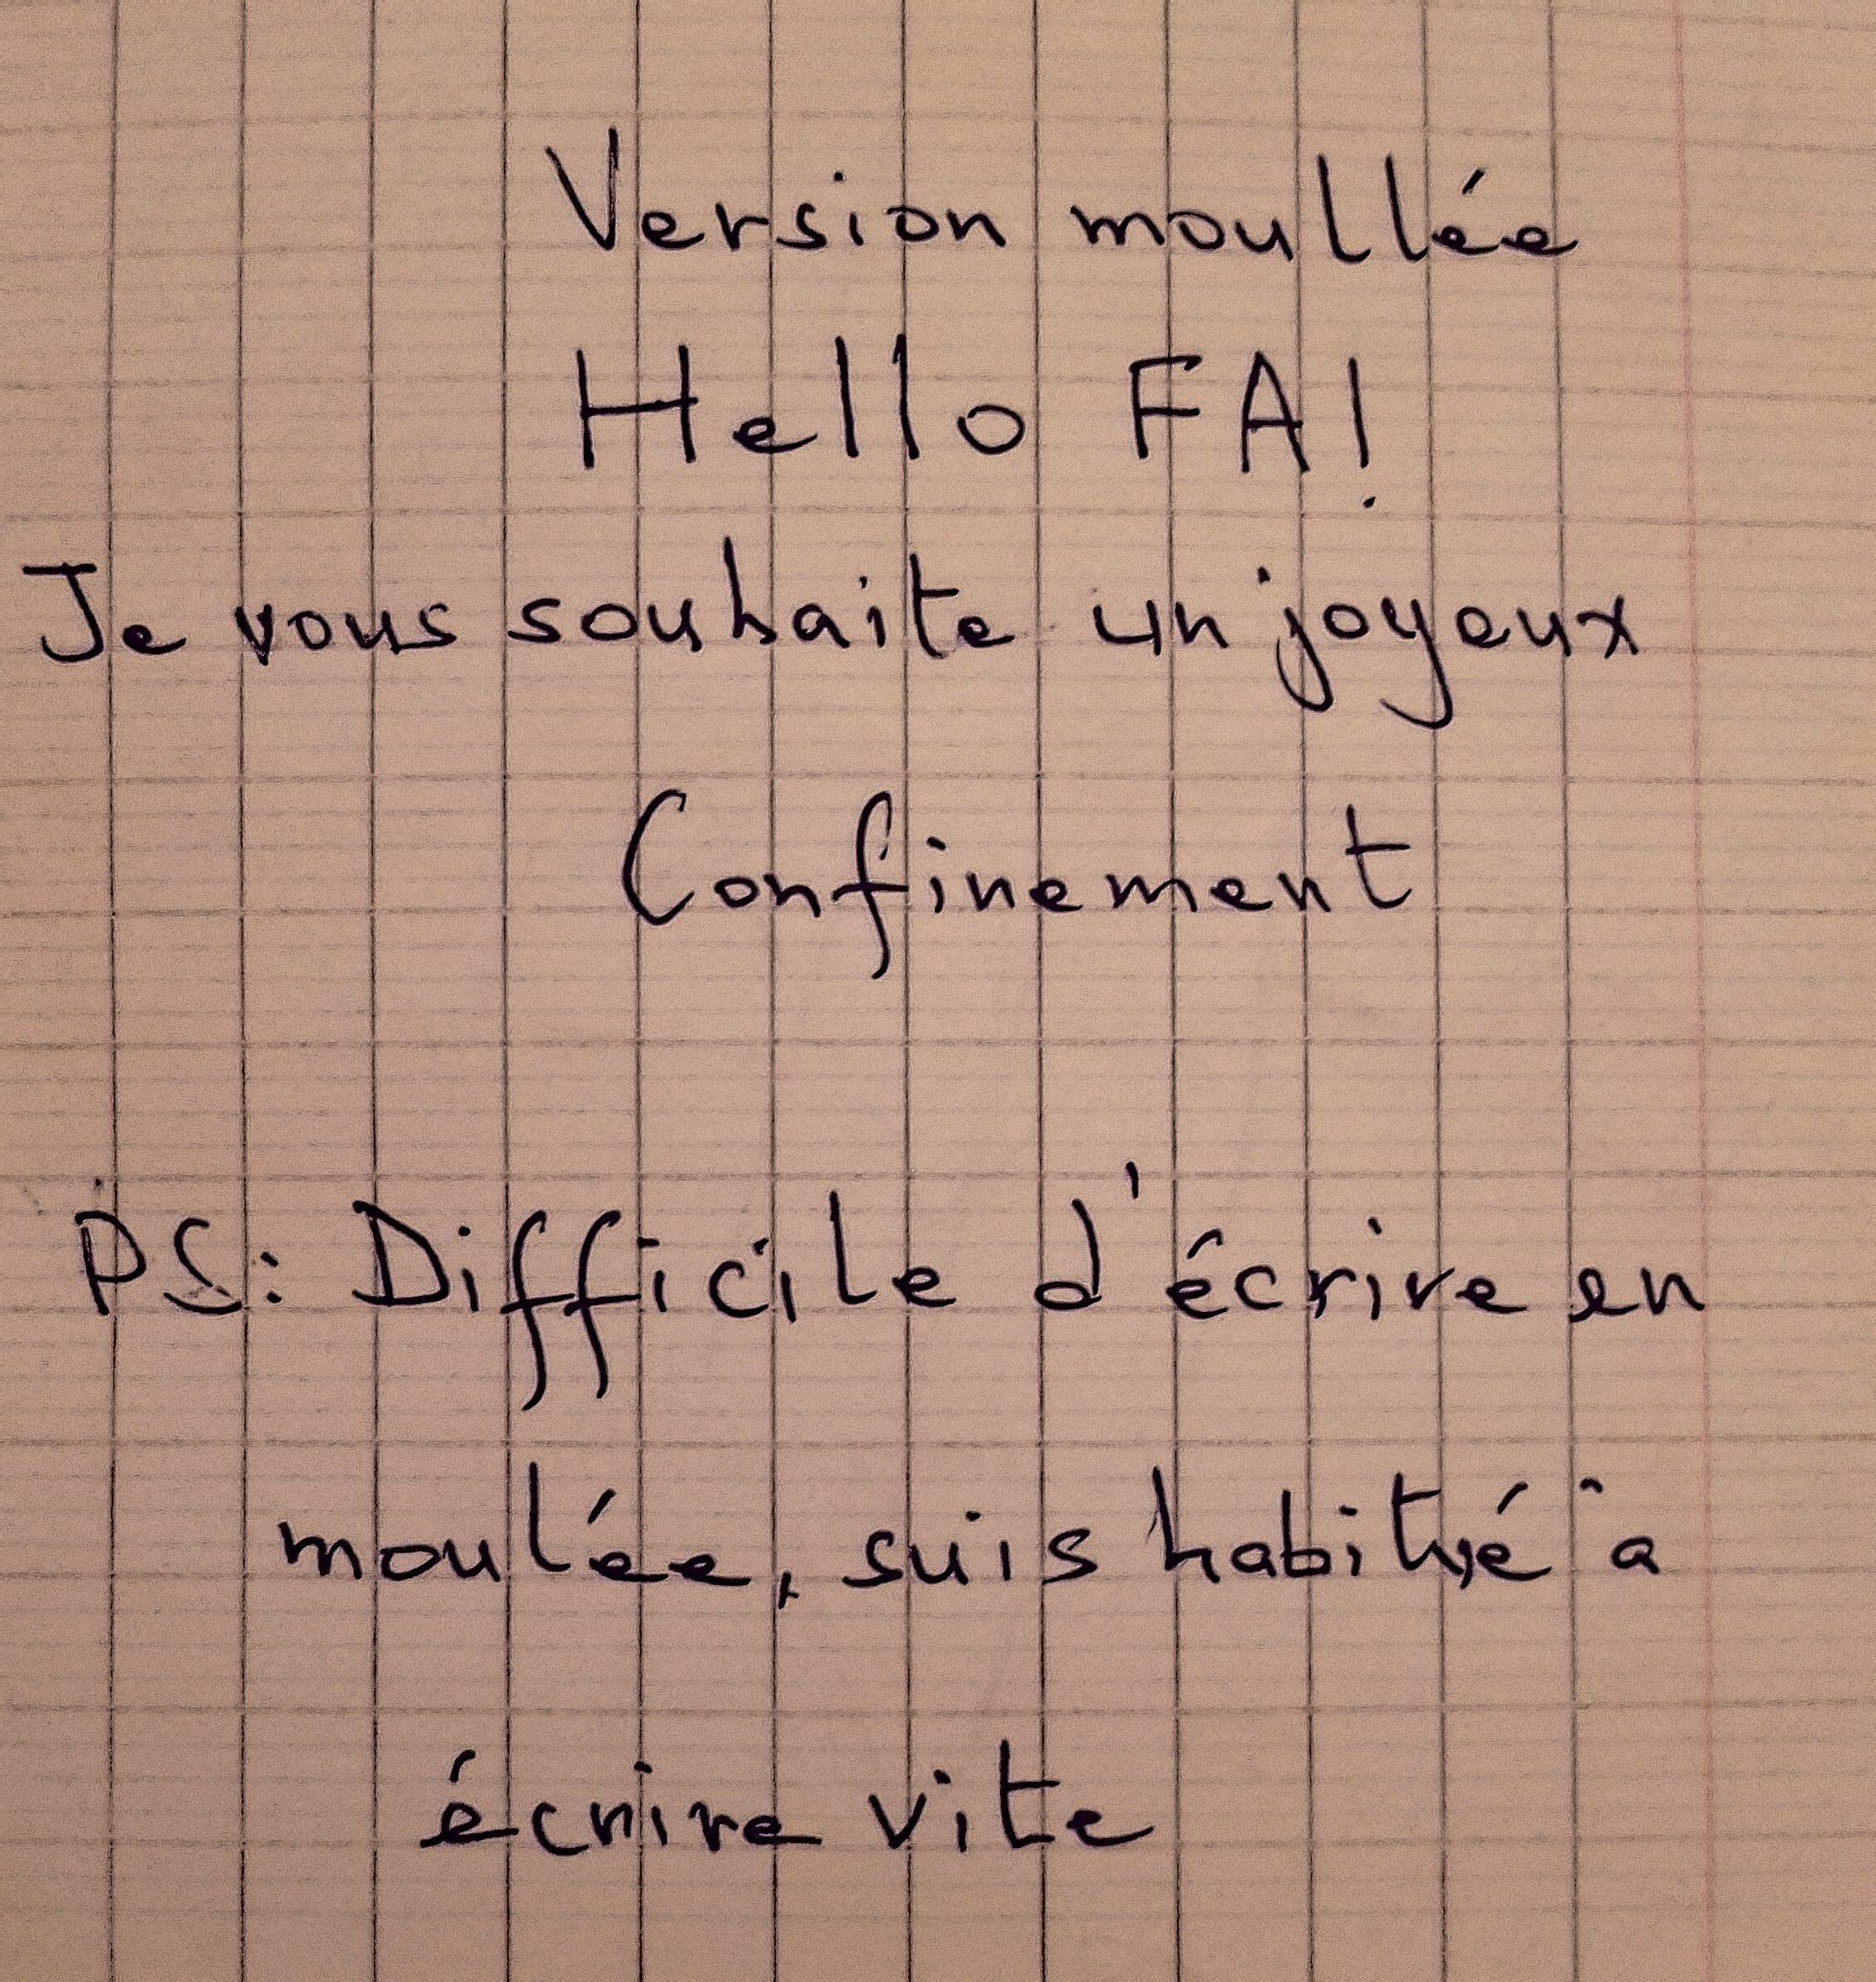 Version moullée
Hello FA!
Je vous souhaite un joyeux
Confinement
PS: Difficile d'écrire en
moulée, suis habitué à
écrire vite